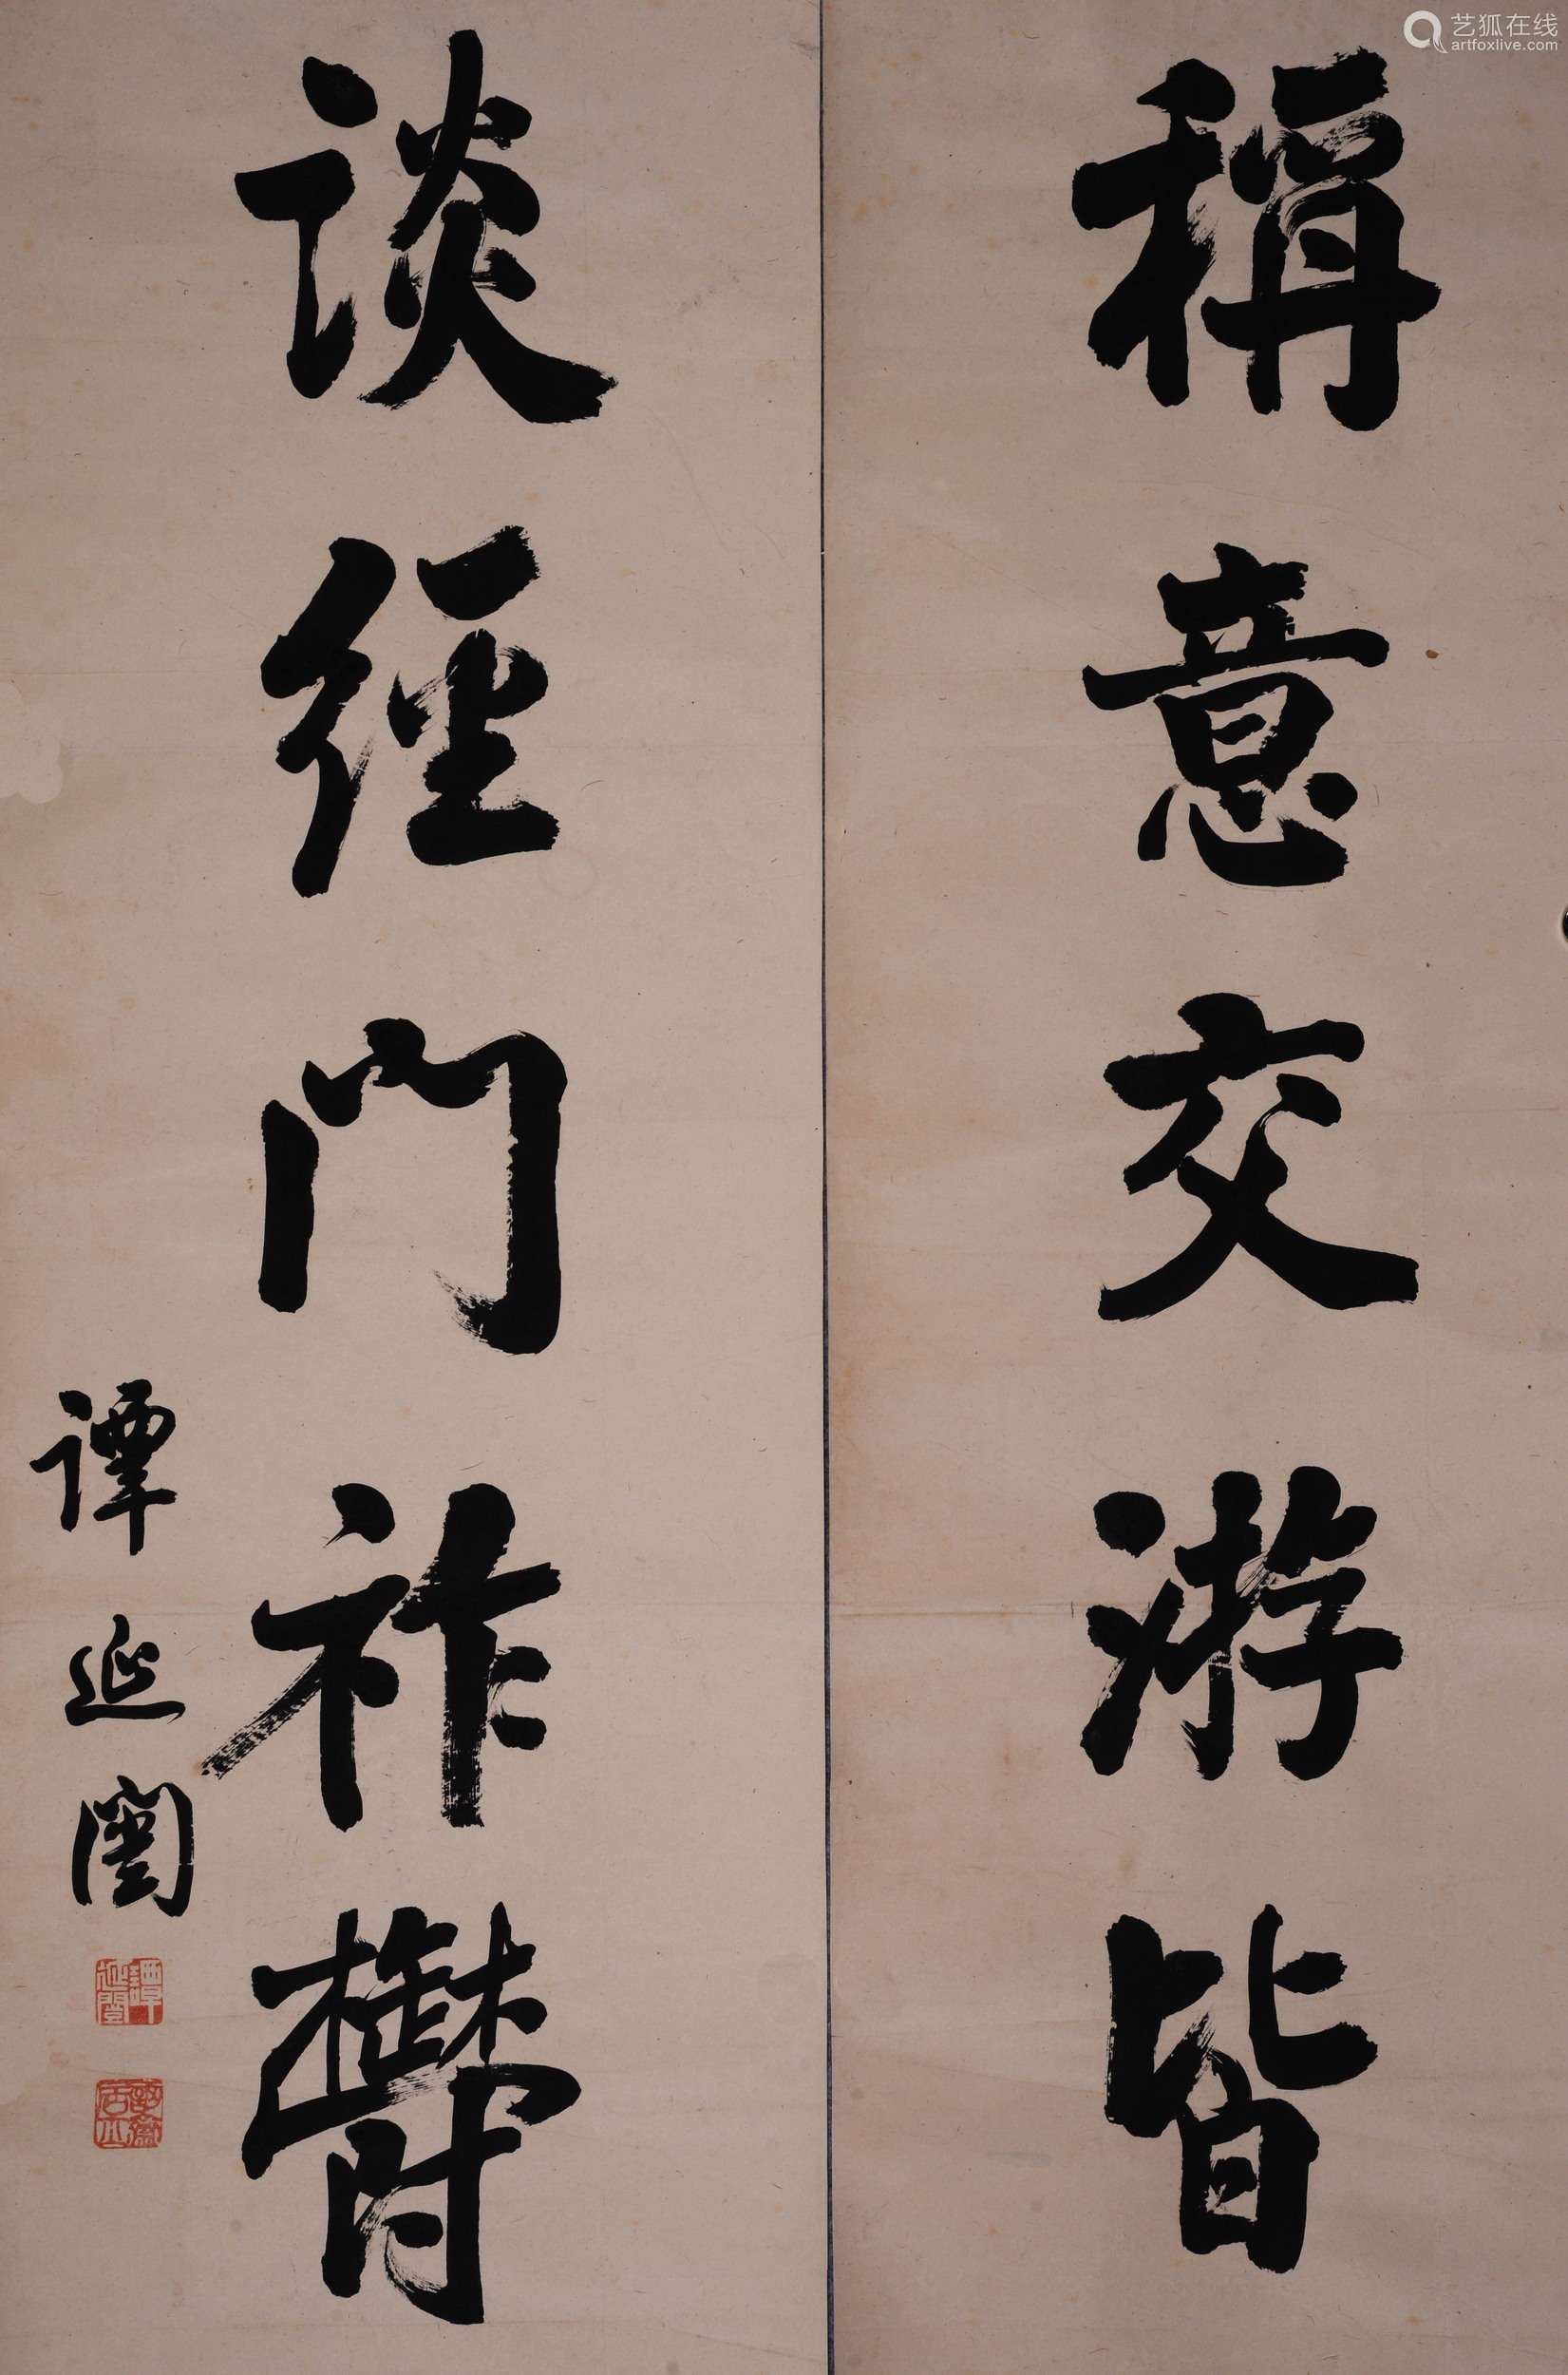 稱意交游皆
談經門祚鬱
譚延闓
譚延闓
艺狐在线
artfoxlive.com